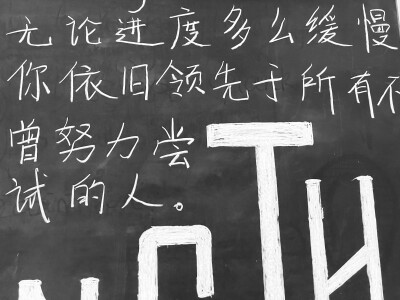 无论进度多么缓慢
你依旧领先于所有不
曾努力尝
试的人。
TH